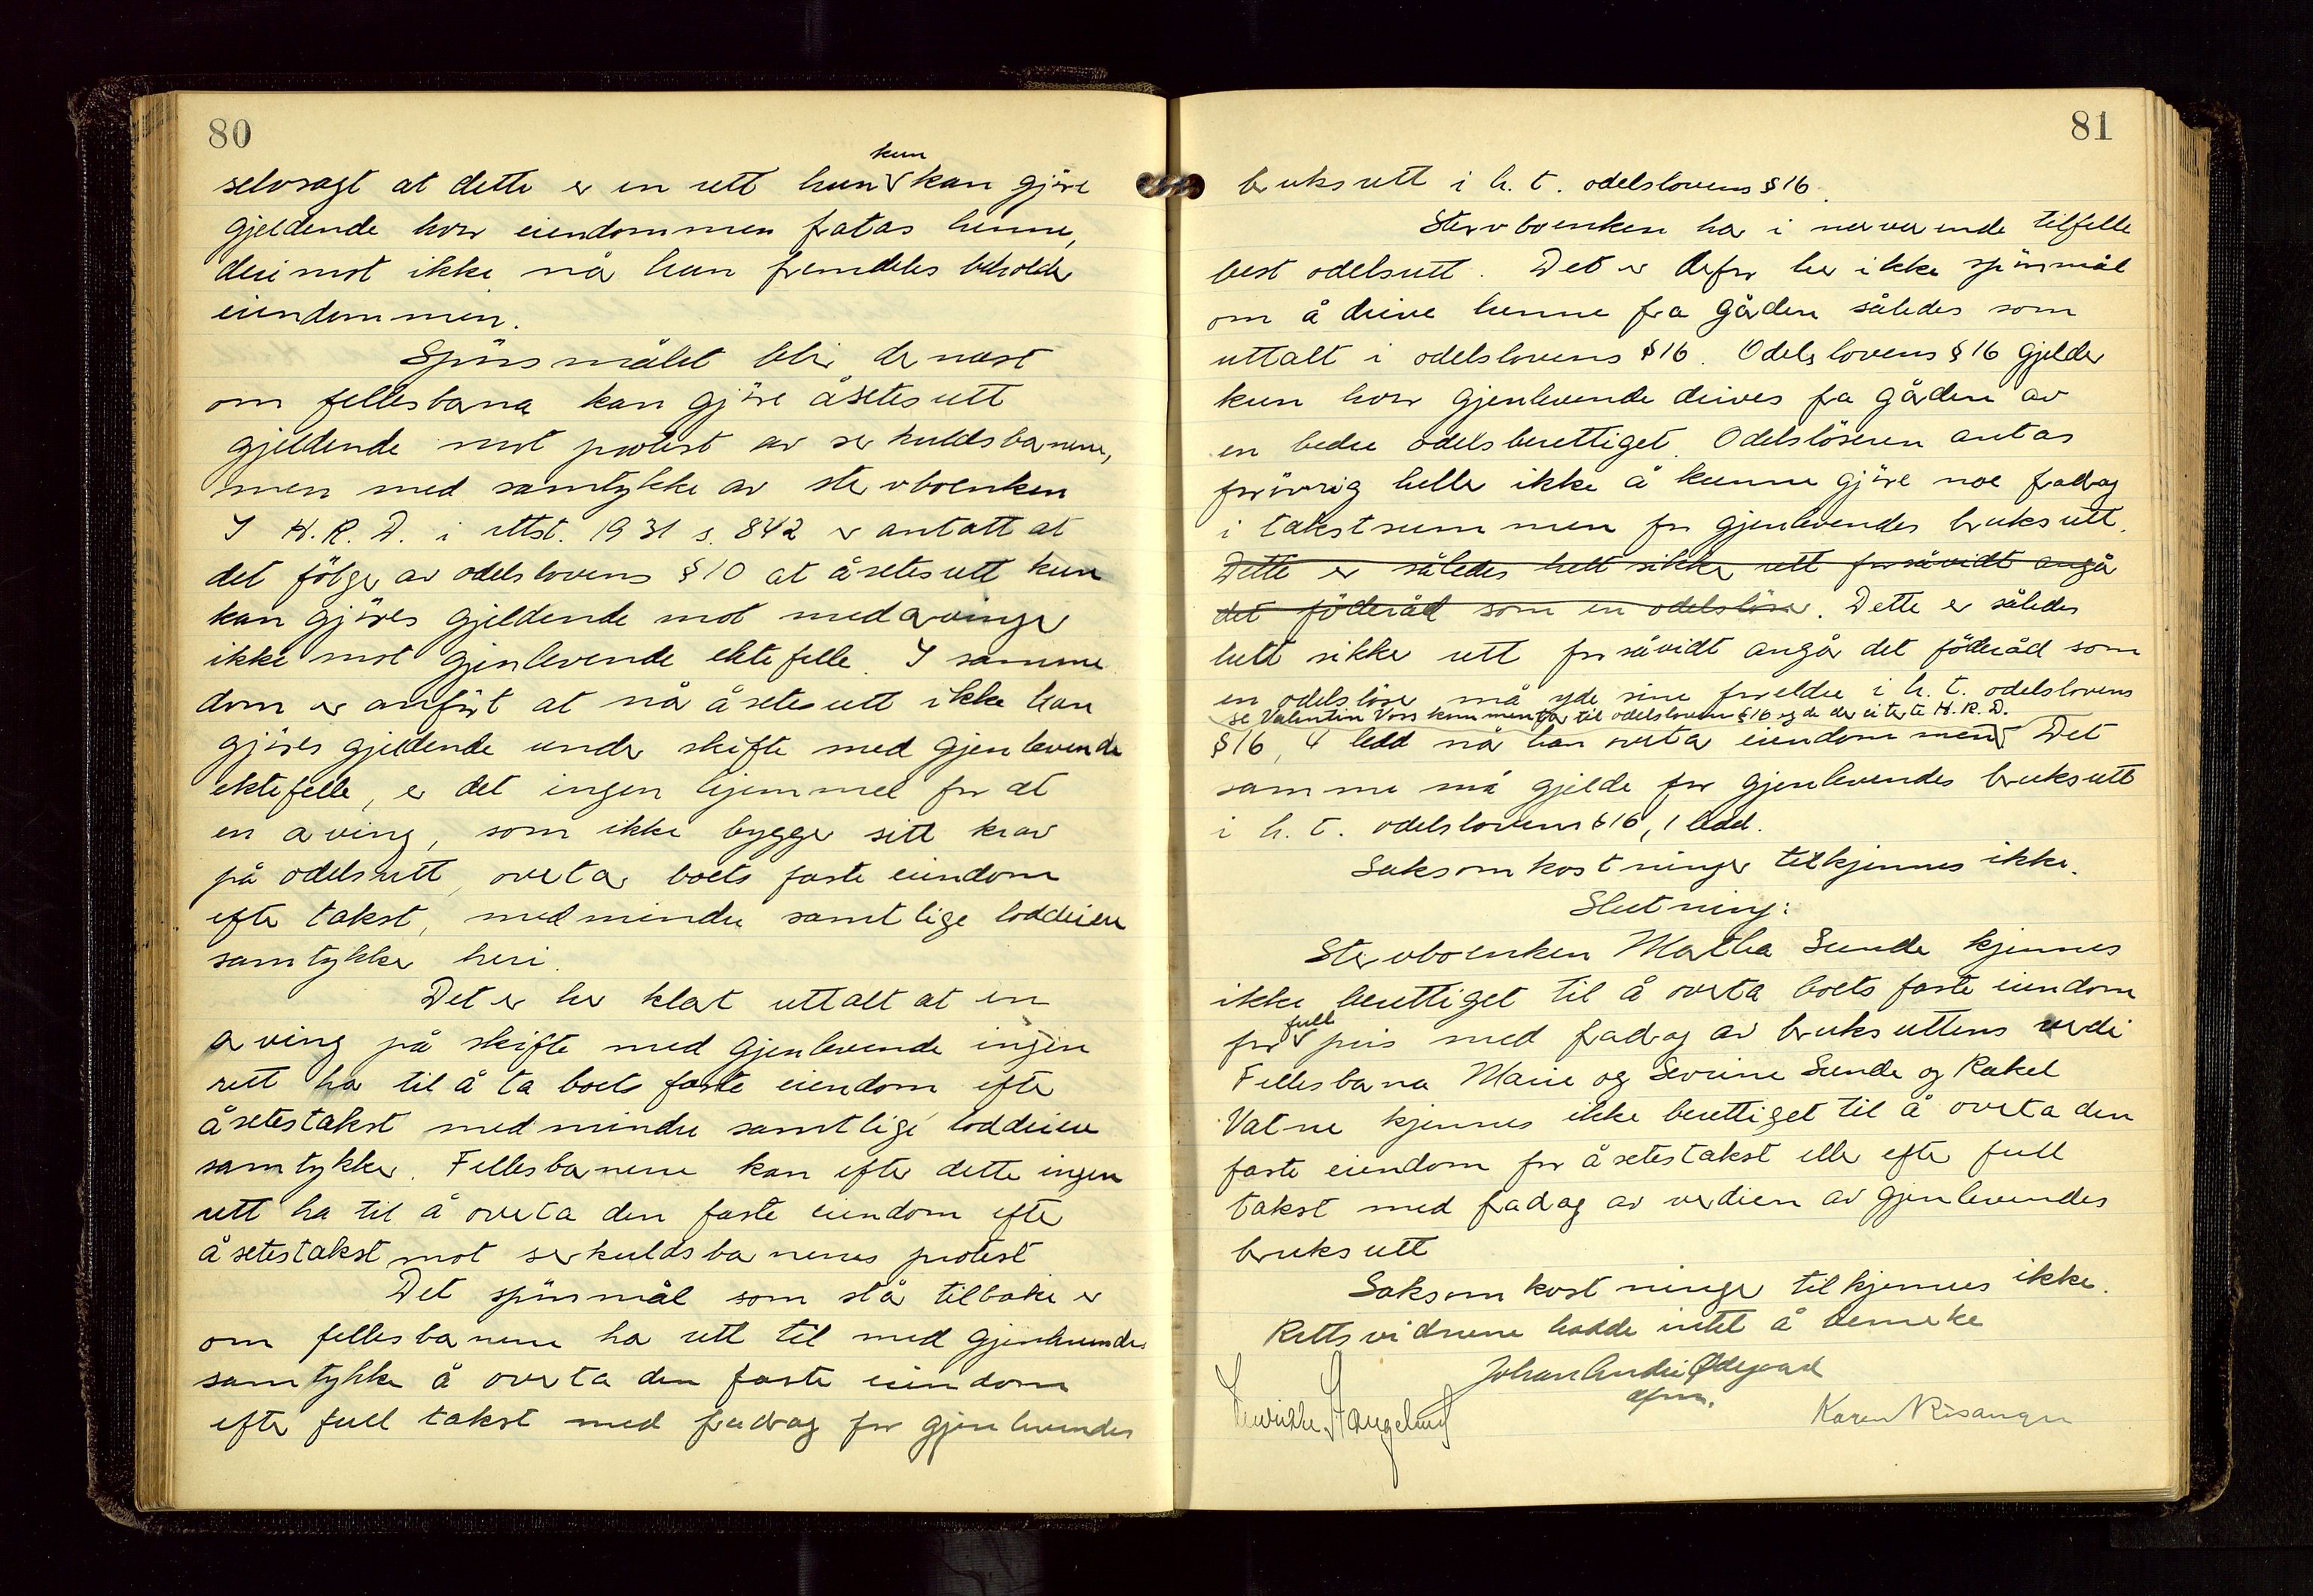 80
kun
selvsagt at dette er en rett hun kan gjöre
gjeldende hvor eiendommen fratas henne,
derimot ikke når hun fremdeles beholder
eiendommen.
Spörsmålet blir dernæst
om fellesbarna kan gjöre åsetesrett
gjeldende mot protest av særkuldsbarnene,
men med samtykke av stervboenken
I H.R.D. i Rtst. 1931 s. 842 er antatt at
det fölger av odelslovens § 10 at åsetesrett kun
kan gjöres gjeldende mot medarvinger
ikke mot gjenlevende ektefelle. I samme
dom er anfört at når åsetesrett ikke kan
gjöres gjeldende under skifte med gjenlevende
ektefelle, er det ingen hjemmel for at
en arving, som ikke bygger sitt krav
på odelsrett, overtar boets faste eiendom
efter takst, medmindre samtlige loddeiere
samtykker heri.
Det er her klart uttalt at en
arving på skifte med gjenlevende ingen
rett har til å ta boets faste eiendom efter
åsetestakst medmindre samtlige loddeiere
samtykker. Fellesbarnene kan efter dette ingen
rett ha til å overta den faste eiendom efter
åsetestakst mot særkuldsbarnenes protest
Det spörsmål som står tilbake er
om fellesbarnene har rett til med gjenlevendes
samtykke å overta den faste eiendom
efter full takst med fradrag for gjenlevendes
81
bruksrett i h.t. odelslovens § 16.
Stervboenken har i nærværende tilfelle
best odelsrett. Det er derfor her ikke spörsmål
om å drive henne fra gården således som
uttalt i odelslovens § 16. Odelslovens § 16 gjelder
kun hvor gjenlevende drives fra gården av
en bedre odelsberettiget. Odelslöseren antas
forövrig heller ikke å kunne gjöre noe fradrag
i takstsummen for gjenlevendes bruksrett.
Dette er således helt sikker rett forsåvidt angår
det föderåd som en odelslöser. Dette er således
helt sikker rett forsåvidt angår det föderåd som
en odelslöser må yde sine foreldre i h.t. odelslovens
se Valentin Voss kommentar til odelsloven § 16 og de der citerte H.R.D.
§ 16, 4 ledd når han overtar eiendommen. Det
samme må gjelde for gjenlevendes bruksrett
i h.t. odelslovens § 16, 1 ledd.
Saksomkostninger tilkjennes ikke.
Slutning:
Stervboenken Martha Sunde kjennes
ikke berettiget til å overta boets faste eiendom
full
for pris med fradrag av bruksrettens verdi
Fellesbarna Marie og Severine Sunde og Rakel
Vatne kjennes ikke berettiget til å overta den
faste eiendom for åsetestakst eller efter full
takst med fradrag av verdien av gjenlevendes
bruksrett
Saksomkostninger tilkjennes ikke.
Rettsvidnene hadde intet å bemerke
Johan Andr. Ödegaard
dfm.
Henrikke Haugeland
Karen Risanger